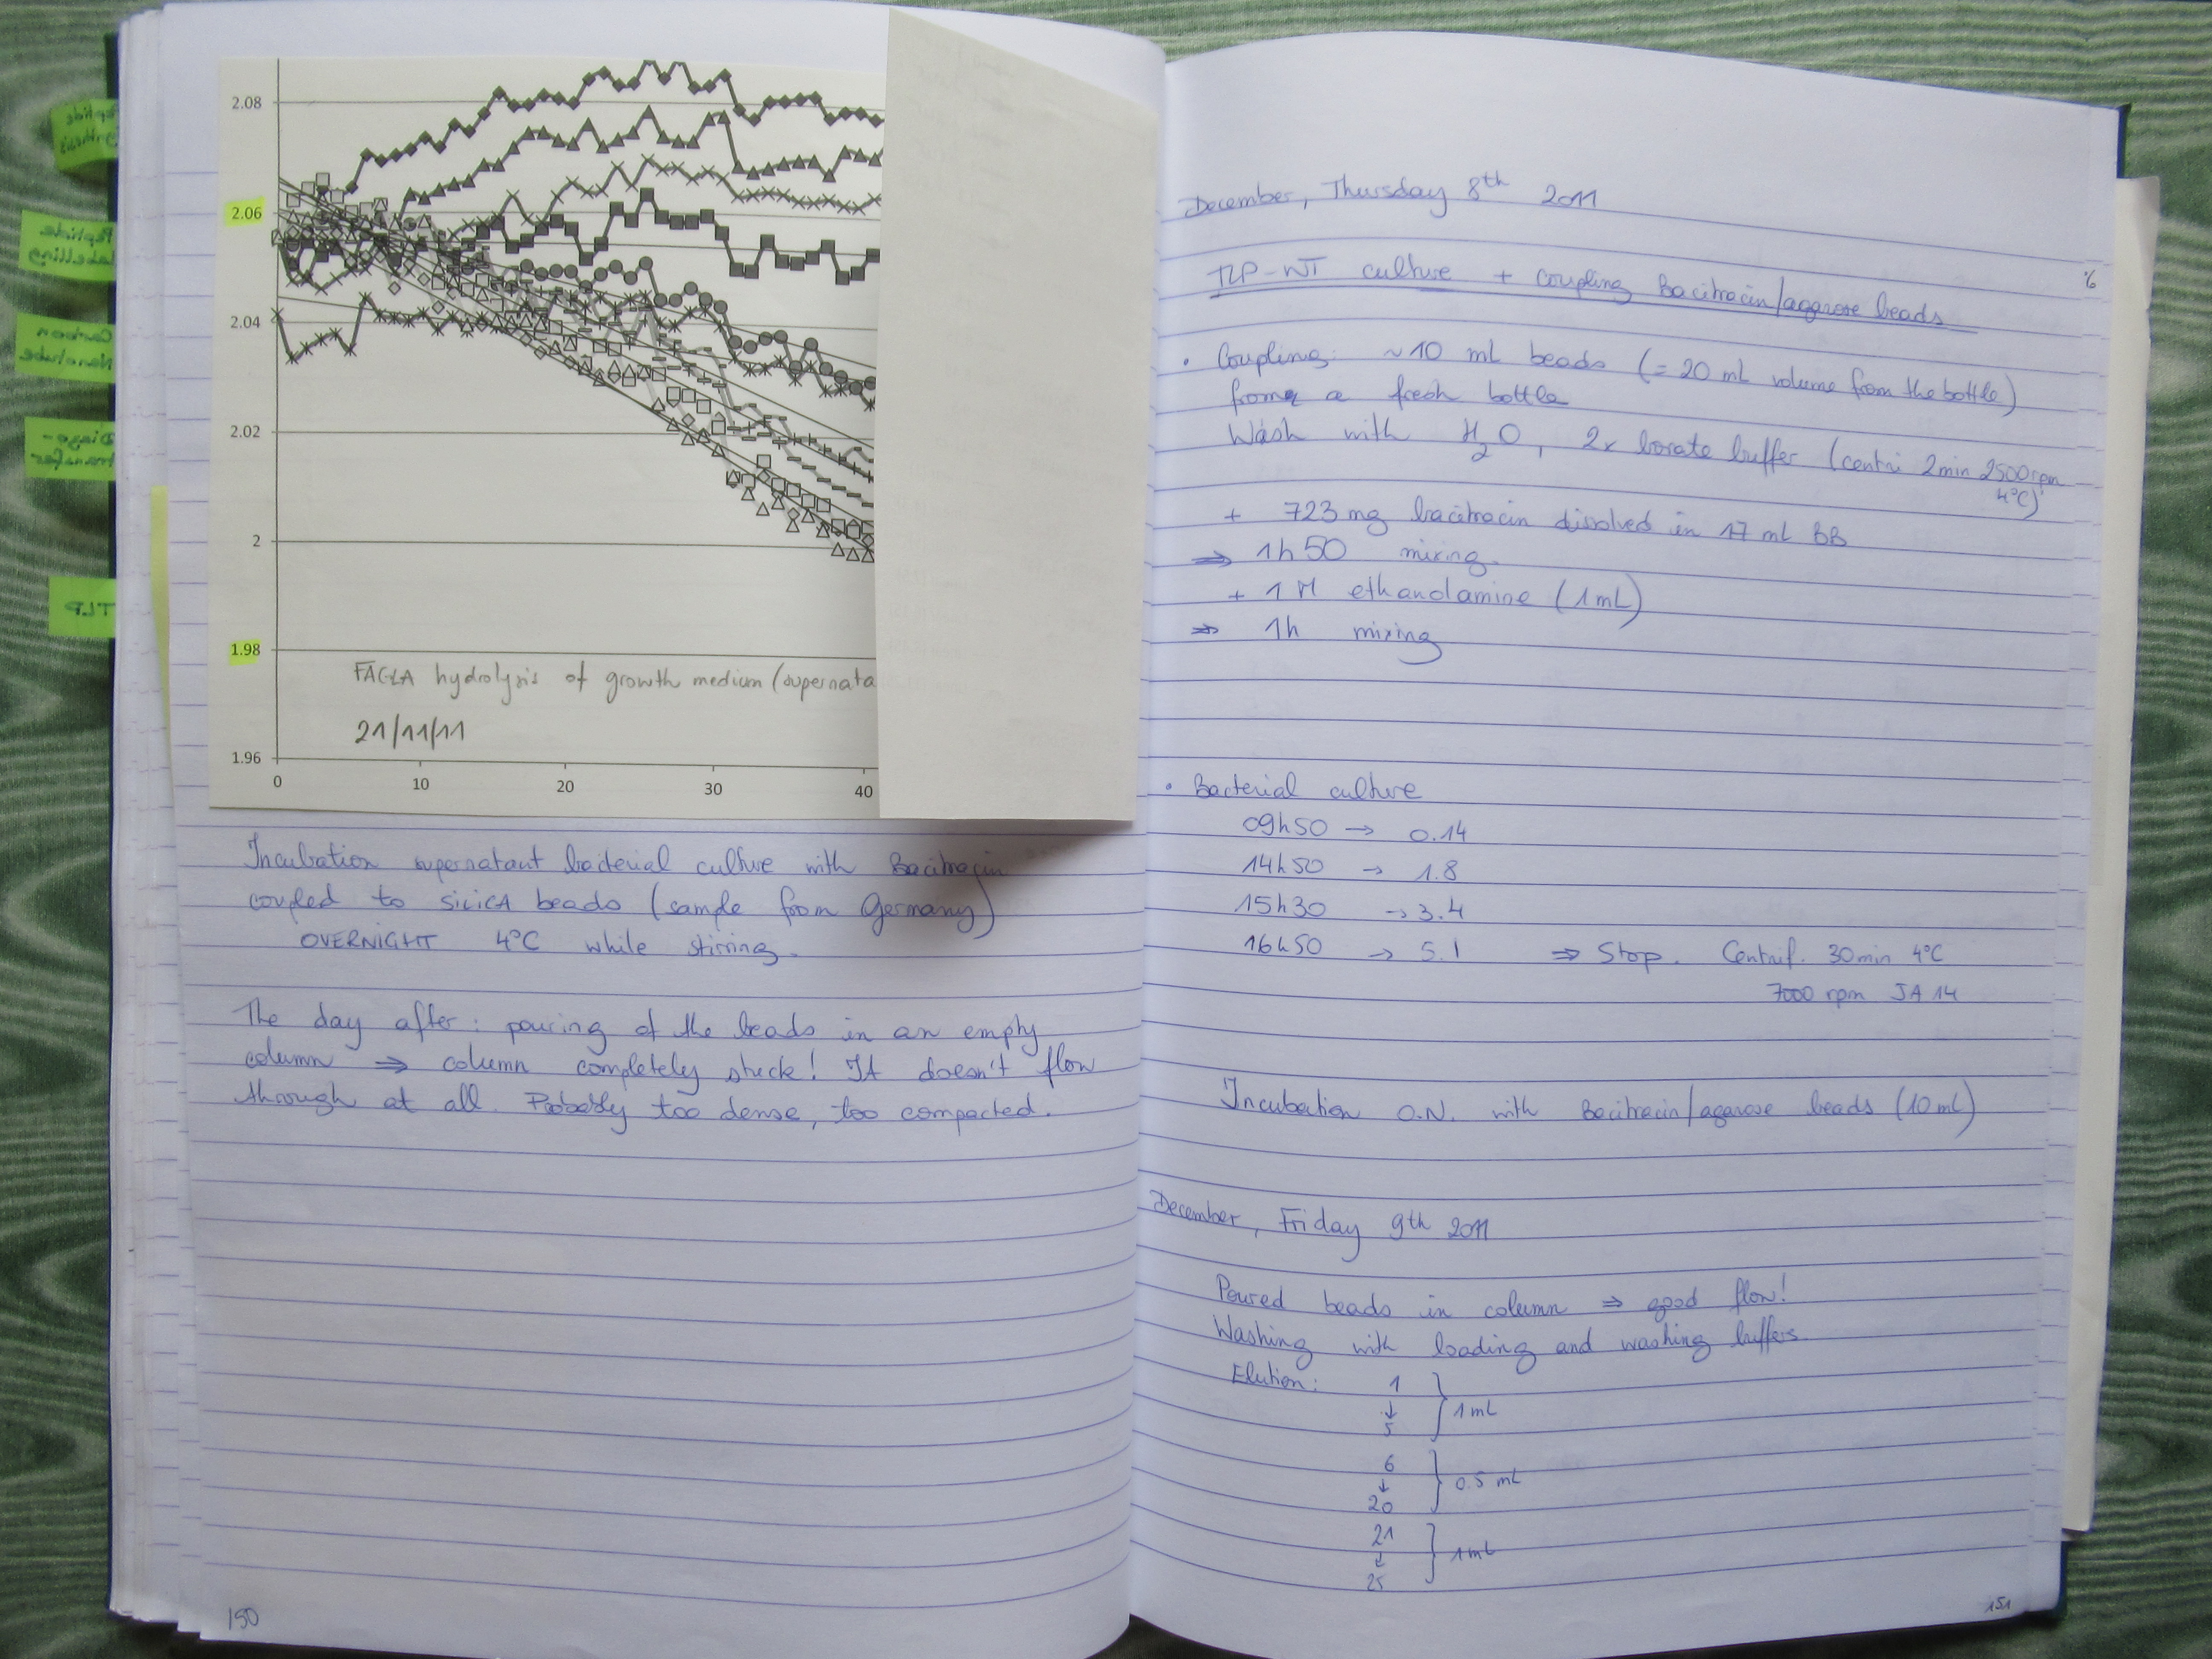 Peptide
Synthesis
Peptide
labelling
Carbon
Nanotube
Diazo-
transfer
TLP
2.08
2.06
2.04
2.02
2
1.98
1.96
0 10 20 30 40
FAGLA hydrolysis of growth medium (supernata
21/11/11
Incubation supernatant bacterial culture with Bacitracin
coupled to SILICA beads (sample from Germany)
OVERNIGHT 4°C while stirring.
The day after: pouring of the beads in an empty
column ⇒ column completely stuck! It doesn't flow
through at all. Probably too dense, too compacted.
150
December, Thursday 8th 2011
TLP-WT culture + coupling Bacitracin/agarose beads
• Coupling: ~10 mL beads (= 20 mL volume from the bottle)
from a fresh bottle
Wash with H2O, 2x borate buffer (centri 2min 2500rpm
4°C)
+ 723 mg bacitracin dissolved in 17 mL BB
⇒ 1h50 mixing.
+ 1 M ethanolamine (1mL)
⇒ 1h mixing
• Bacterial culture
09h50 → 0.14
14h50 → 1.8
15h30 → 3.4
16h50 → 5.1 ⇒ Stop. Centrif. 30min 4°C
7000 rpm JA 14
Incubation O.N. with Bacitracin/agarose beads (10 mL)
December, Friday 9th 2011
Poured beads in column ⇒ good flow!
Washing with loading and washing buffers.
Elution: 1
↓ } 1 mL
5
6
↓ } 0.5 mL
20
21
↓ } 1 mL
25
151